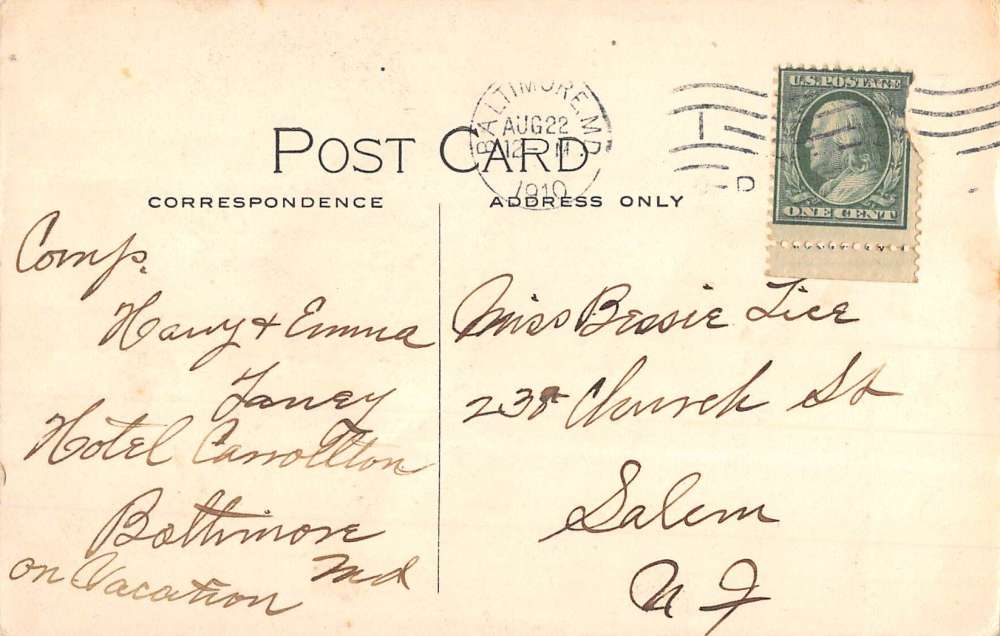 POST CARD
CORRESPONDENCE
ADDRESS ONLY
BALTIMORE, MD.
AUG 22
12 - M
1910
U.S. POSTAGE
ONE CENT
Comp.
Harry & Emma
Laney
Hotel Carrollton
Baltimore
Md
on Vacation
Miss Bessie Lice
Church St
Salem
N J